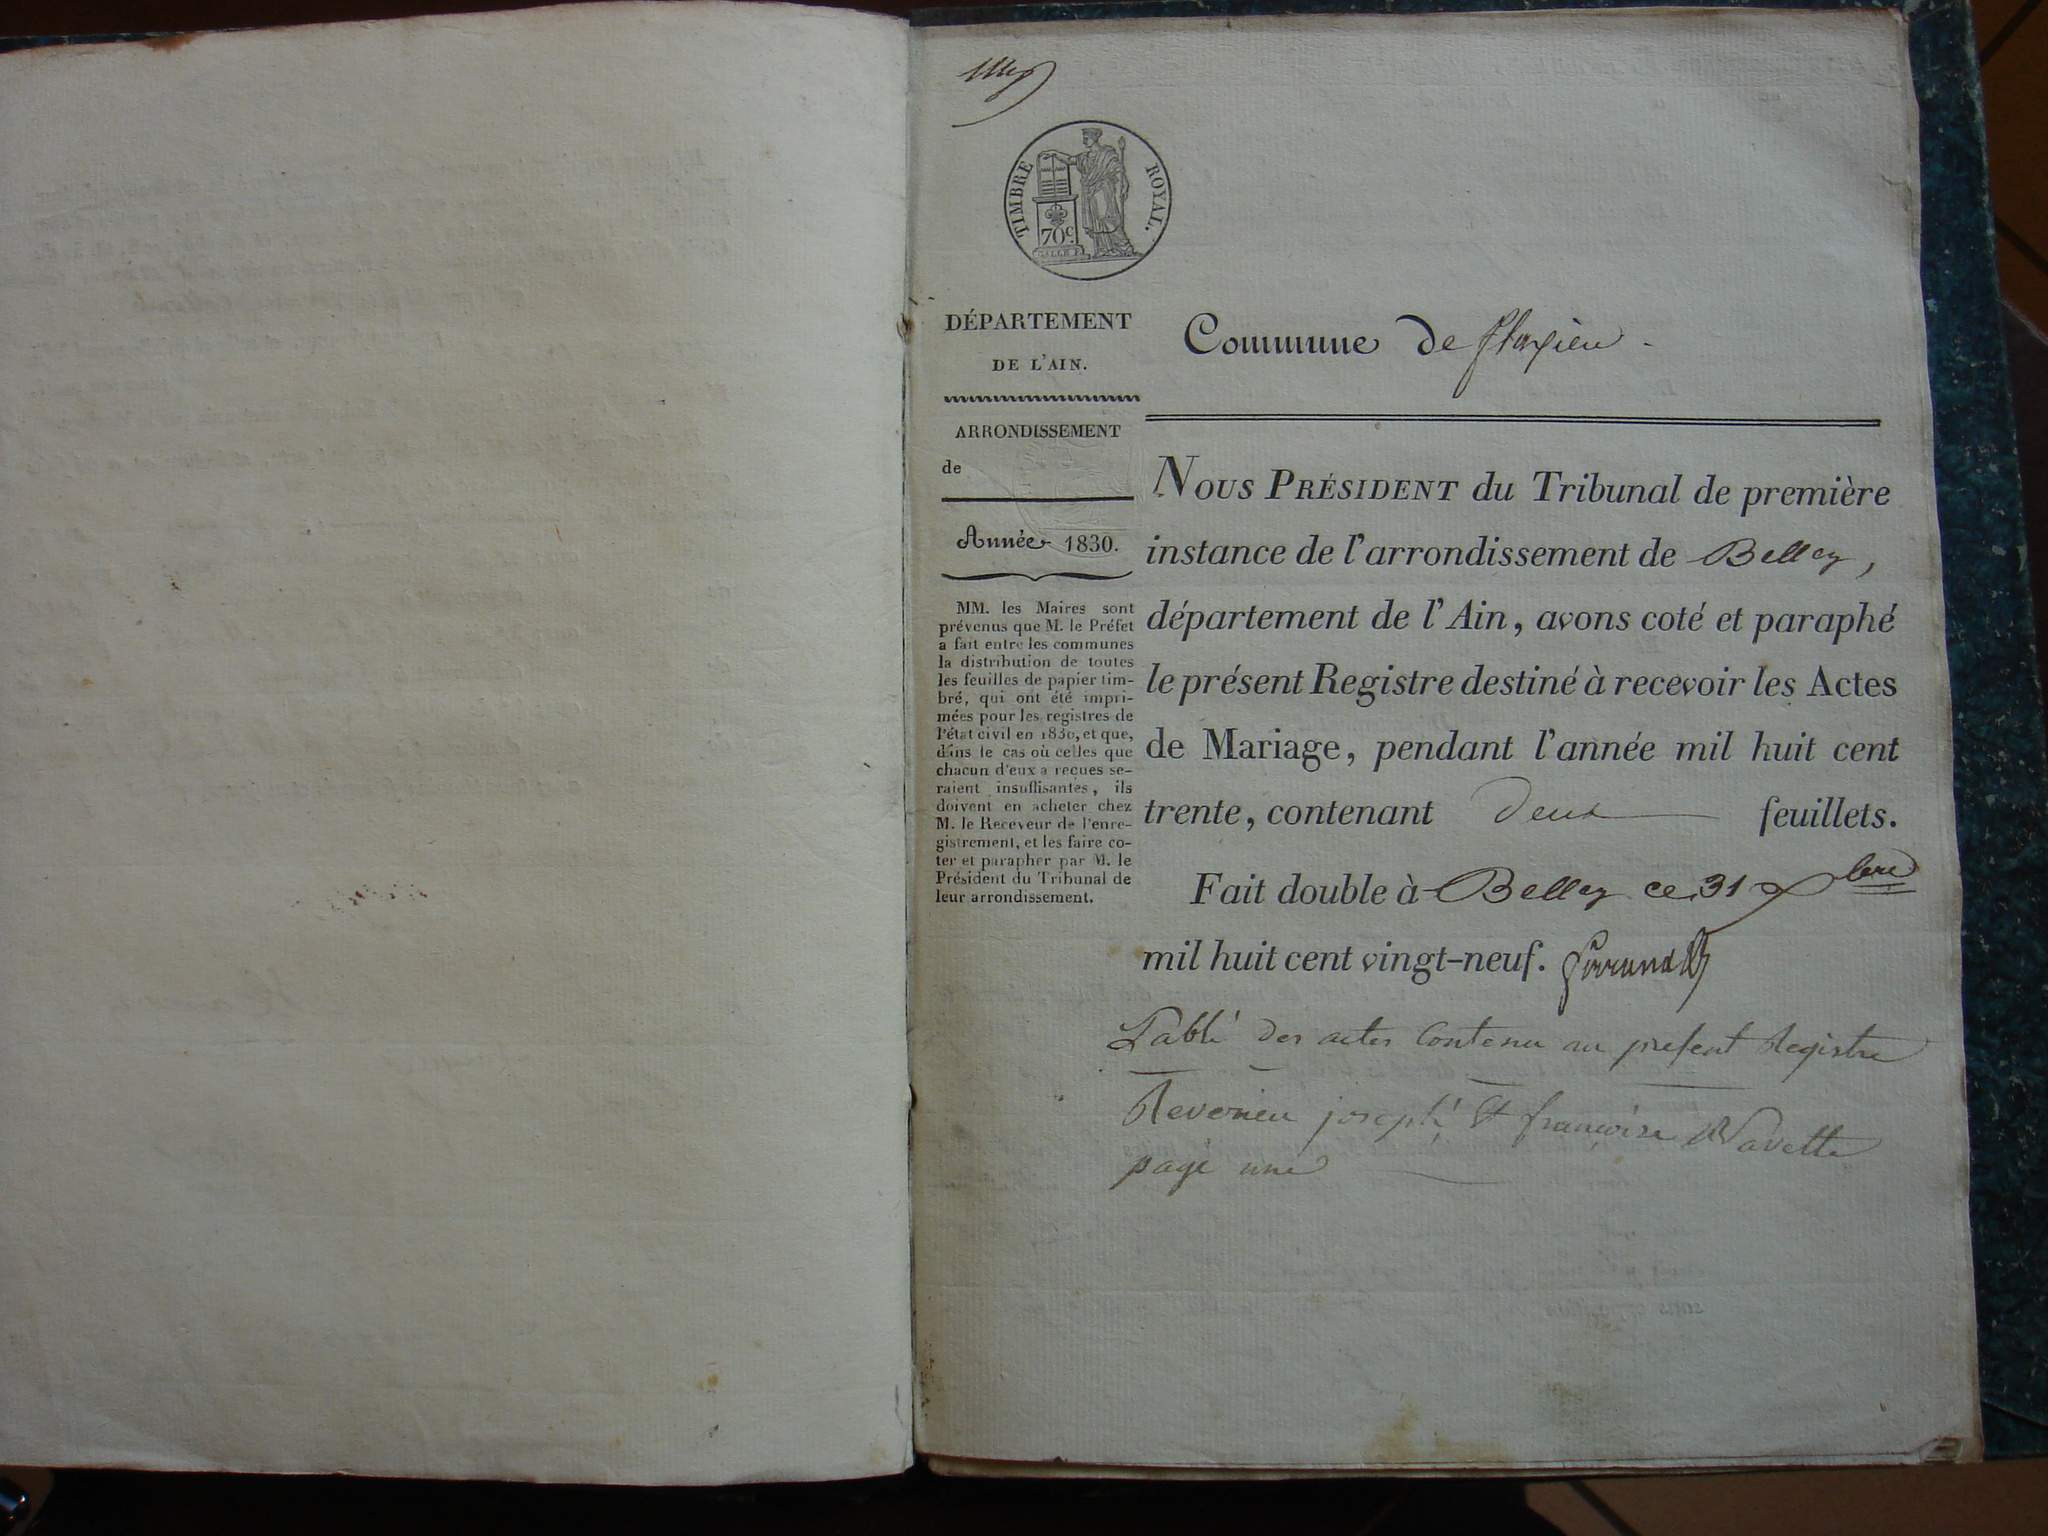 TIMBRE ROYAL.
70c.
DÉPARTEMENT
DE L'AIN.
ARRONDISSEMENT
de
Année 1830.
MM. les Maires sont
prévenus que M. le Préfet
a fait entre les communes
la distribution de toutes
les feuilles de papier tim-
bré, qui ont été impri-
mées pour les registres de
l'état civil en 1830, et que,
dans le cas où celles que
chacun d'eux a reçues se-
raient insuffisantes, ils
doivent en acheter chez
M. le Receveur de l'enre-
gistrement, et les faire co-
ter et parapher par M. le
Président du Tribunal de
leur arrondissement.
Commune de flaxieu
NOUS PRÉSIDENT du Tribunal de première
instance de l'arrondissement de Belley,
département de l'Ain, avons coté et paraphé
le présent Registre destiné à recevoir les Actes
de Mariage, pendant l'année mil huit cent
trente, contenant deux feuillets.
Fait double à Belley ce 31 xbre
mil huit cent vingt-neuf.
Table des actes Contenu au present Registre
joseph Et françoise
page une